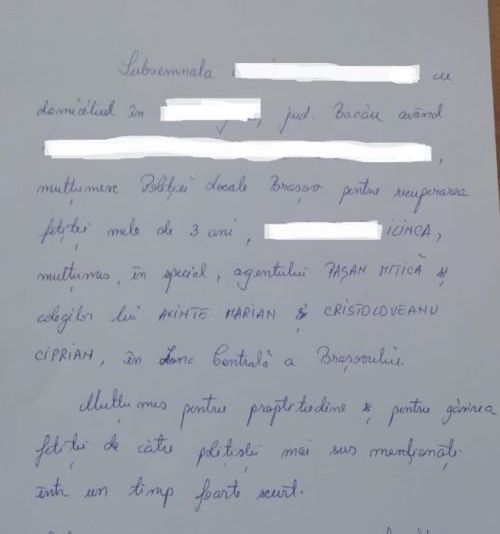 Subsemnata cu
domiciliul în , jud. Bacău având
,
mulțumesc Poliției Locale Brașov pentru recuperarea
fetiței mele de 3 ani, ILINCA,
mulțumesc, în special, agentului PAȘAN MITICĂ și
colegilor lui AXINTE MARIAN și CRISTOLOVEANU
CIPRIAN, în Zona Centrală a Brașovului.
Mulțumesc pentru promptitudine și pentru găsirea
fetiței de către polițiștii mai sus menționați
într un timp foarte scurt.